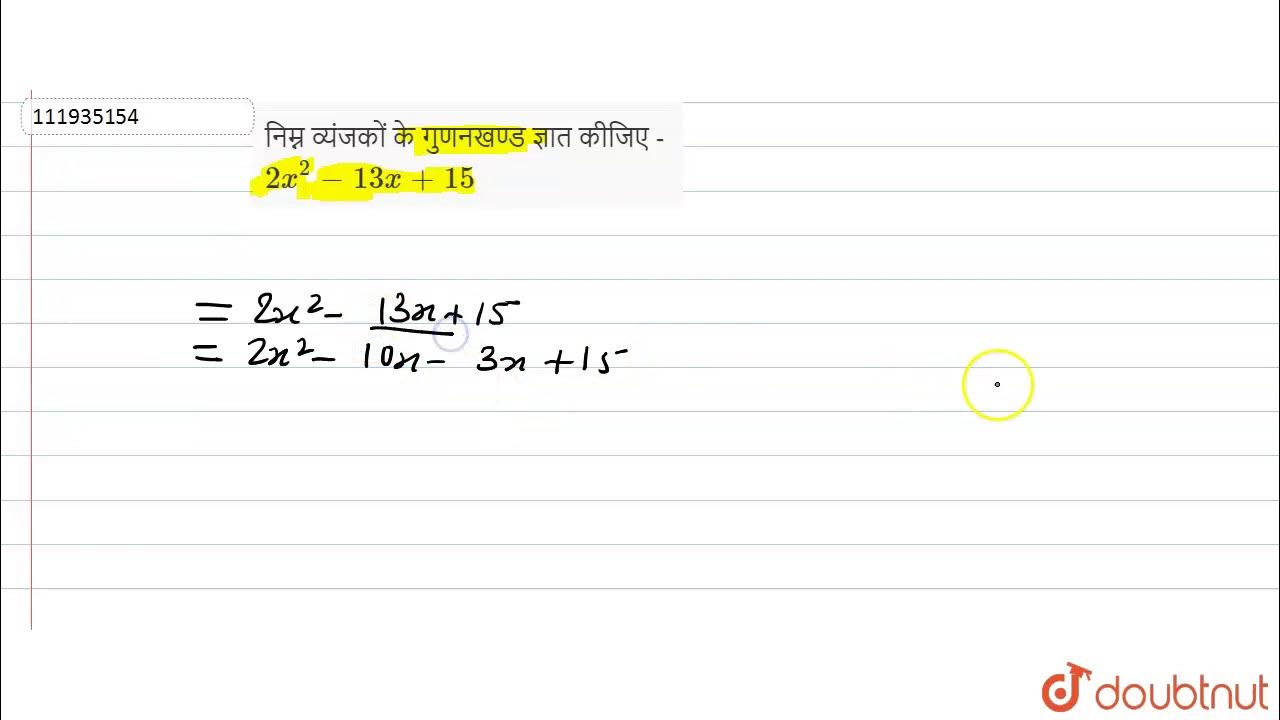 111935154
निम्न व्यंजकों के गुणनखण्ड ज्ञात कीजिए -
2x² − 13x + 15
= 2x² - 13x + 15
= 2x² - 10x - 3x + 15
doubtnut